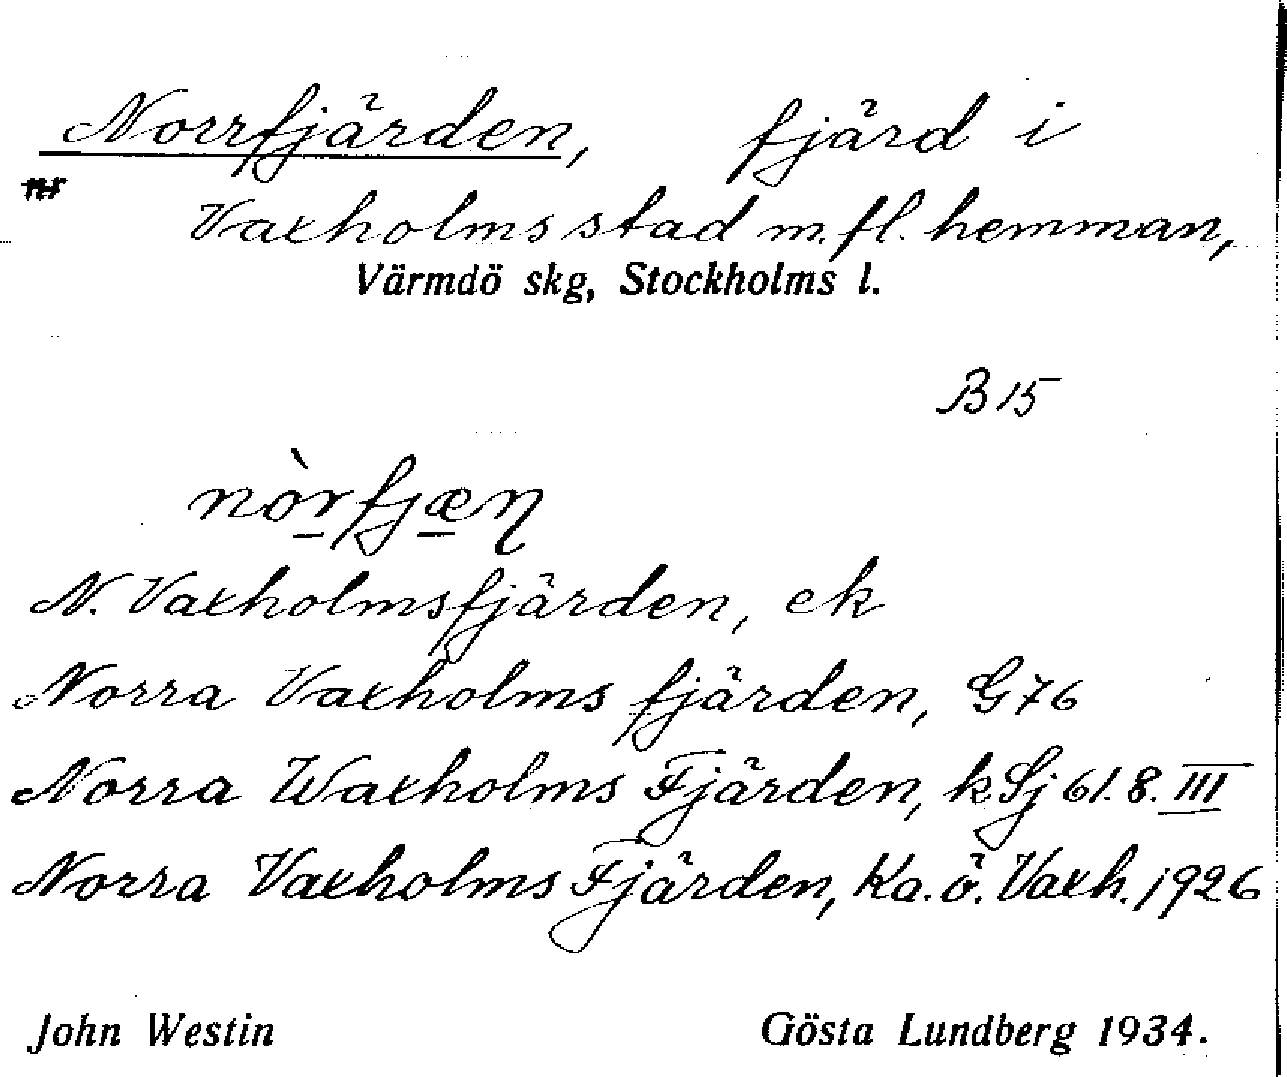 Norrfjärden, fjärd i
Vaxholms stad m. fl. hemman,
Värmdö skg, Stockholms l.
B 15
nòrfjæɳ
N. Vaxholmsfjärden, ek
Norra Vaxholms fjärden, G 76
Norra Waxholms Fjärden, kSj 61. 8. III
Norra Vaxholms Fjärden, Ka. ö. Vaxh. 1926
John Westin Gösta Lundberg 1934.